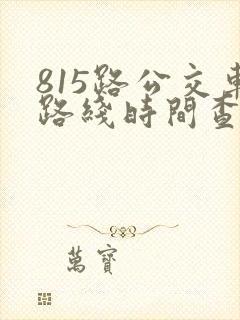 815路公交車
路綫時間查
萬寶